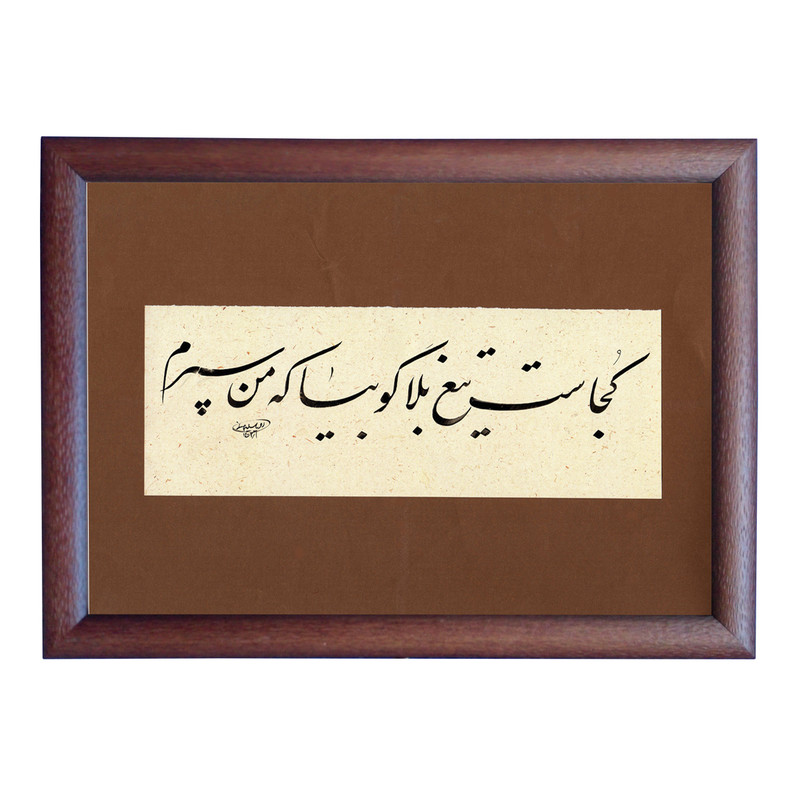 کجاست تیغ بلا گو بیا که من سپرم